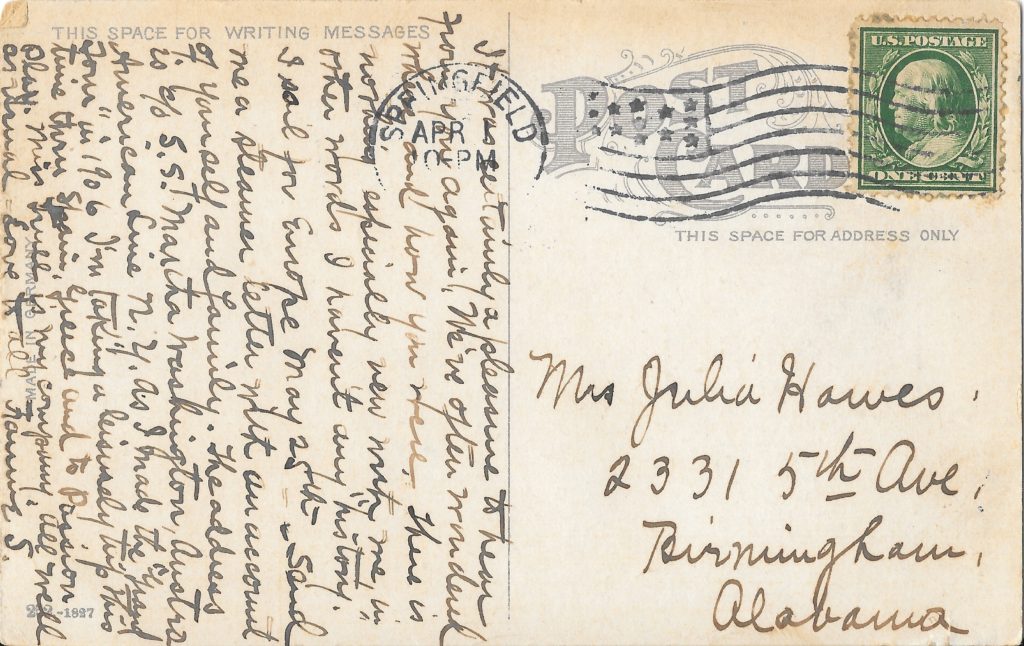 THIS SPACE FOR WRITING MESSAGES
It was certainly a pleasure to hear
from you again. We've often wondered
where and how you were. There is
nothing especially new with me, in
other words I haven't any "history."
I sail for Europe May 25th- Send
me a steamer letter with an account
of yourself and family. The address
is c/o S.S. Martha Washington, Austro
American Line N.Y. As I made the "Grand
Tour" in 1906 I'm taking a leisurely trip this
time thru Spain, Greece and to Passion
Play. Miss my company. All well
as usual - Love to all
MADE IN GERMANY
222-1827
SPRINGFIELD
APR
PM
POST
CARD
U.S. POSTAGE
ONE CENT
THIS SPACE FOR ADDRESS ONLY
Mrs Julia Hawes.
2331 5th Ave,
Birmingham,
Alabama